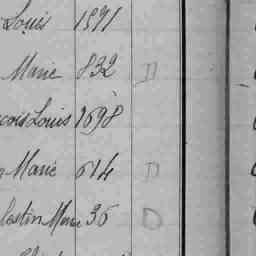 Louis 1891
Marie 832 D
çois Louis 1698
Marie 614 D
lestin Marie 36 D